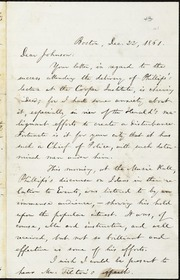 Boston, Dec. 22, 1861.
Dear Johnson:
Your letter, in regard to the
success attending the delivery of Phillips's
lecture at the Cooper Institute, is cheering
for I had some anxiety about
it, especially in view of the Herald's
malignant efforts to create a disturbance.
Fortunate is it for your city that it has
such a Chief of Police, with such
determined men under him.
This morning, at the Music Hall,
Phillips's discourse on
was listened to by an
immense audience, showing his hold
upon the popular interest. It was, of
course, able and instructive, and well
received, but not as brilliant and
effective as some of his efforts.
I wish I could be present to
hear Mr. Tilton's speech